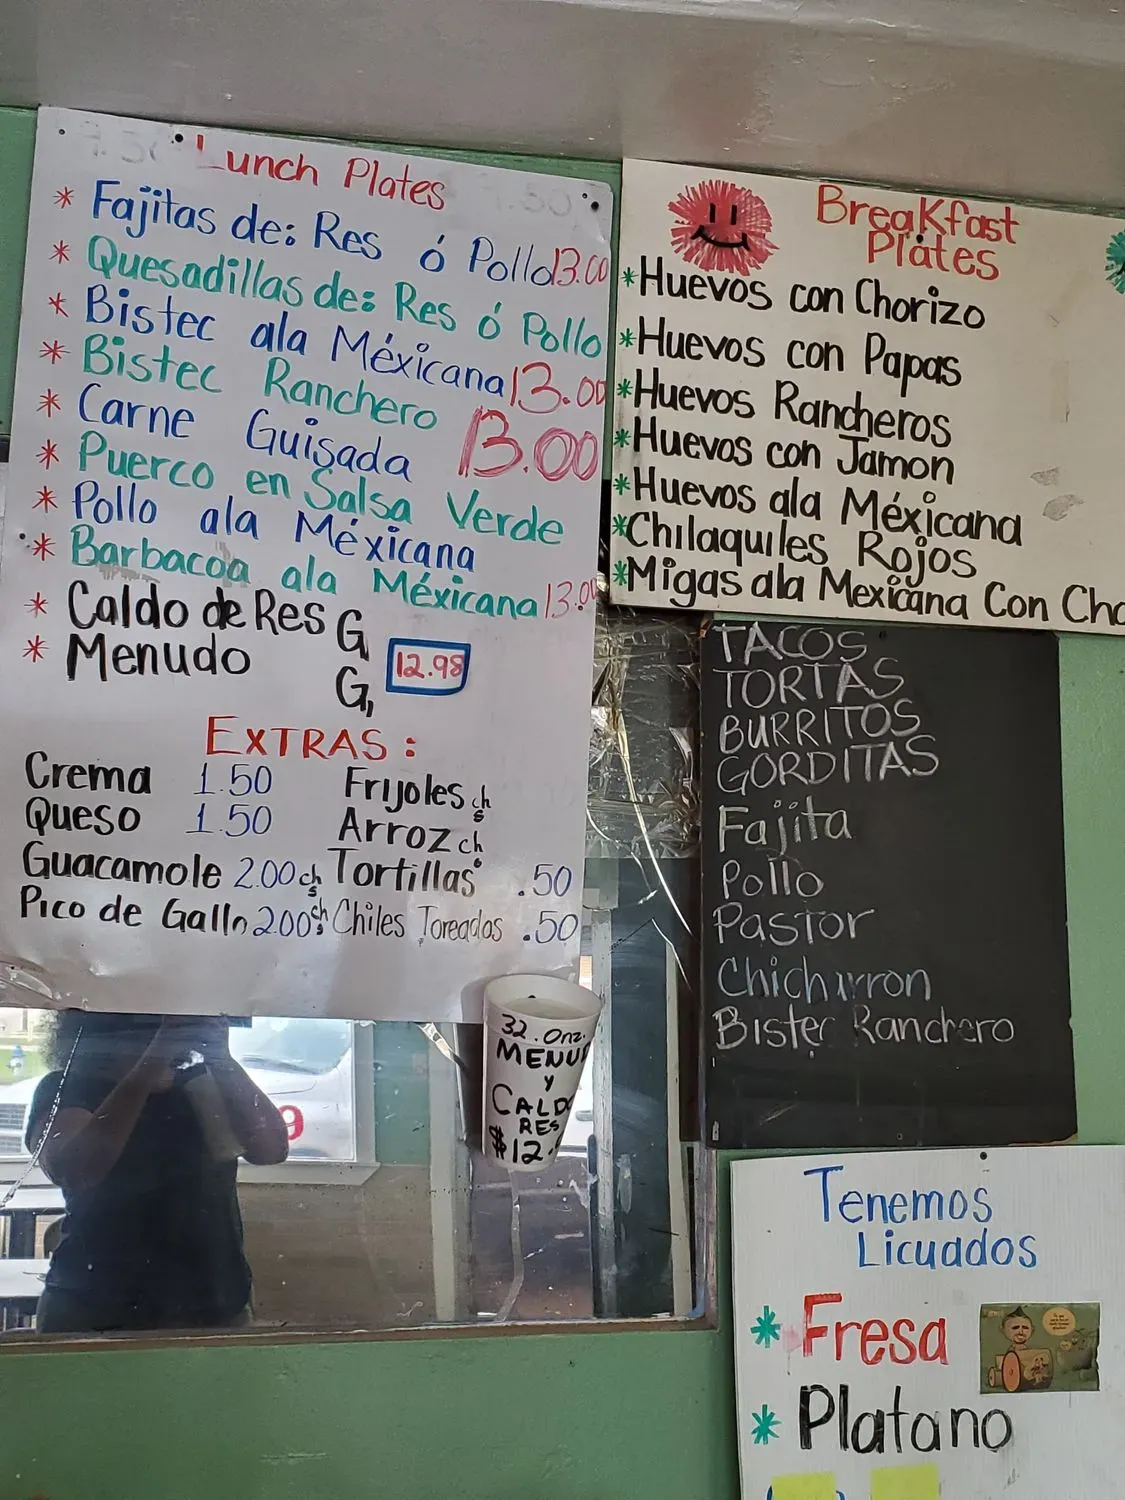 Lunch Plates
* Fajitas de: Res ó Pollo 13.00
* Quesadillas de: Res ó Pollo
* Bistec ala Méxicana 13.00
* Bistec Ranchero
13.00
* Carne Guisada
* Puerco en Salsa Verde
* Pollo ala Méxicana
* Barbacoa ala Méxicana 13.00
* Caldo de Res G,
* Menudo G,
12.98
EXTRAS:
Crema 1.50 Frijoles ch
Queso 1.50 Arroz ch
Guacamole 2.00 ch Tortillas .50
Pico de Gallo 2.00 ch Chiles Toreados .50
32.Onz.
MENU
Y
CALDO
RES
$12.
Breakfast
Plates
*Huevos con Chorizo
*Huevos con Papas
*Huevos Rancheros
*Huevos con Jamon
*Huevos ala Méxicana
*Chilaquiles Rojos
*Migas ala Mexicana Con Cho
TACOS
TORTAS
BURRITOS
GORDITAS
Fajita
Pollo
Pastor
Chicharron
Bistec Ranchero
Tenemos
Licuados
* Fresa
* Platano